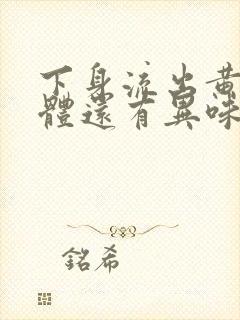 下身流出黃
體還有異味
銘希